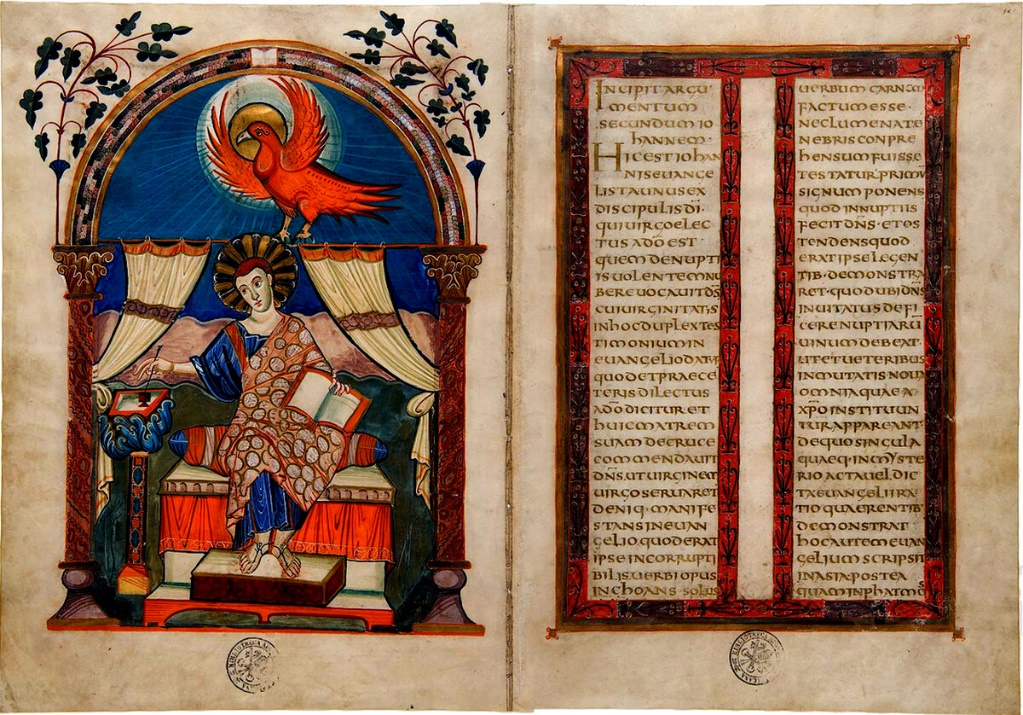 INCIPIT ARGU
MENTUM
SECUNDUM IO
HANNEM·
HIC EST IOHAN
NIS EUANGE
LISTA UNUS EX
DISCIPULIS DI·
QUI UIRGO ELEC
TUS A DO EST·
QUEM DE NUPTI
IS UOLENTEM NU
BERE UOCAUIT DS
CUI UIRGINITATIS
IN HOC DUPLEX TES
TIMONIUM IN
EUANGELIO DATUR
QUOD ET PRAECE
TERIS DILECTUS
A DO DICITUR ET
HUIC MATREM
SUAM DE CRUCE
COMMENDAUIT
DNS· UT UIRGINEM
UIRGO SERUARET
DENIQ· MANIFE
STANS IN EUAN
GELIO· QUOD ERAT
IPSE INCORRUPTI
BILIS UERBI OPUS
INCHOANS· SOLUS
UERBUM CARNEM
FACTUM ESSE·
NEC LUMEN A TE
NEBRIS CONPRE
HENSUM FUISSE
TESTATUR· PRIMU
SIGNUM PONENS
QUOD IN NUPTIIS
FECIT DNS· ET OS
TENDENS QUOD
ERAT IPSE LEGEN
TIB· DEMONSTRA
RET· QUOD UBI DNS
INUITATUS DEFI
CERE NUPTIARU
UINUM DEBEAT·
UT ET UETERIBUS
INMUTATIS NOUA
OMNIA QUAE A
XPO INSTITUUN
TUR APPAREANT
DE QUO SINGULA
QUAEQ· IN MYSTE
RIO ACTA UEL DIC
TA EUANGELII RA
TIO QUAERENTIB·
DEMONSTRAT·
HOC AUTEM EUAN
GELIUM SCRIPSIT
IN ASIA· POSTEA
QUAM IN PHATMOS